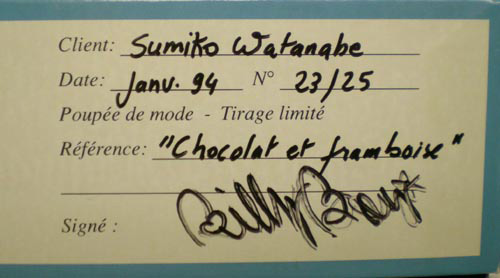 Client: Sumiko Watanabe
Date: Janv. 94 N° 23/25
Poupée de mode - Tirage limité
Référence: "Chocolat et framboise"
Signé : Billy Boy*